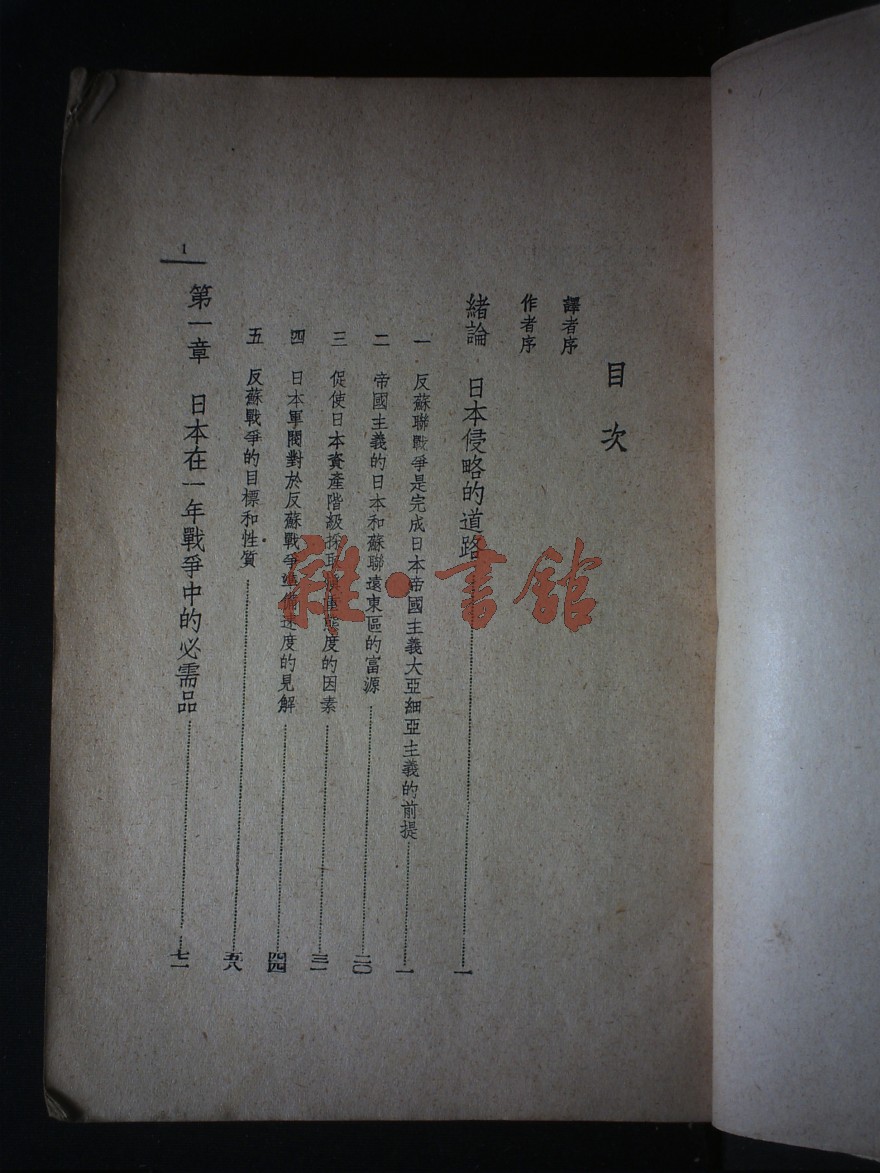 目次
譯者序
作者序
緒論 日本侵略的道路……一
一 反蘇聯戰爭是完成日本帝國主義大亞細亞主義的前提……一
二 帝國主義的日本和蘇聯遠東區的富源……二〇
三 促使日本資產階級採取慎重態度的因素……三一
四 日本軍閥對於反蘇戰爭準備速度的見解……四四
五 反蘇戰爭的目標和性質……五八
第一章 日本在一年戰爭中的必需品……七一
1
雜·書館